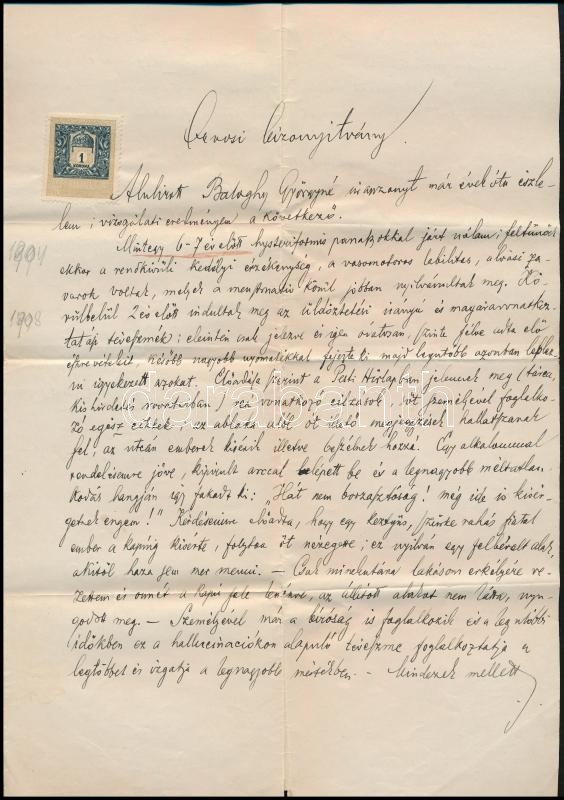 Orvosi bizonyítvány.
1
KORONA
Alulírott Balogh Györgyné úrasszonyt már évek óta észle-
lem; vizsgálati eredményem a következő.
Mintegy 6-7 év előtt hysteriformis panaszokkal járt nálam; feltűnőek
1904
ekkor a rendkívüli kedélyi érzékenység, a vasomotoros labilitás, alvási za-
varok voltak, melyek a menstruatio körül jobban nyilvánultak meg. Kö-
1908
rülbelül 2 év előtt indultak meg az üldöztetési irányú és magáravonatkoz-
tatási téveszmék; eleintén csak jelezve és igen óvatosan, szinte félve adta elő
észrevételeit, később nagyobb nyomatékkal fejezte ki majd legutóbb azonban leplez-
ni igyekezett azokat. Előadása szerint a Pesti Hirlapban jelennek meg (tárca,
kishirdetés rovatában) reá vonatkozó célzások, őt személyével foglalko-
zó egész cikkek; az ablaka alól őt illető megjegyzések hallatszanak
fel; az utcán emberek kísérik illetve beszélnek hozzá. Egy alkalommal
rendelésemre jőve, kipirult arccal belépett be és a legnagyobb méltatlan-
kodás hangján így fakadt ki: „Hát nem borzasztóság! még ide is kisér-
getnek engem!" Kérdésemre előadta, hogy egy keztyűs, szürke ruhás fiatal
ember a kapuig kisérte, folyton őt nézegette; ez nyilván egy felbérelt alak
akitől haza sem mer menni. – Csak mikor utána lakásom erkélyére ve-
zettem és onnét a kapu felé lenézve, az állított alakot nem látta, nyu-
godott meg. – Személyével már a bíróság is foglalkozik és a legutóbbi
időkben ez a hallucinációkon alapuló téveszme foglalkoztatja a
legtöbbet és izgatja a legnagyobb mértékben. – Mindezek mellett
darabanth